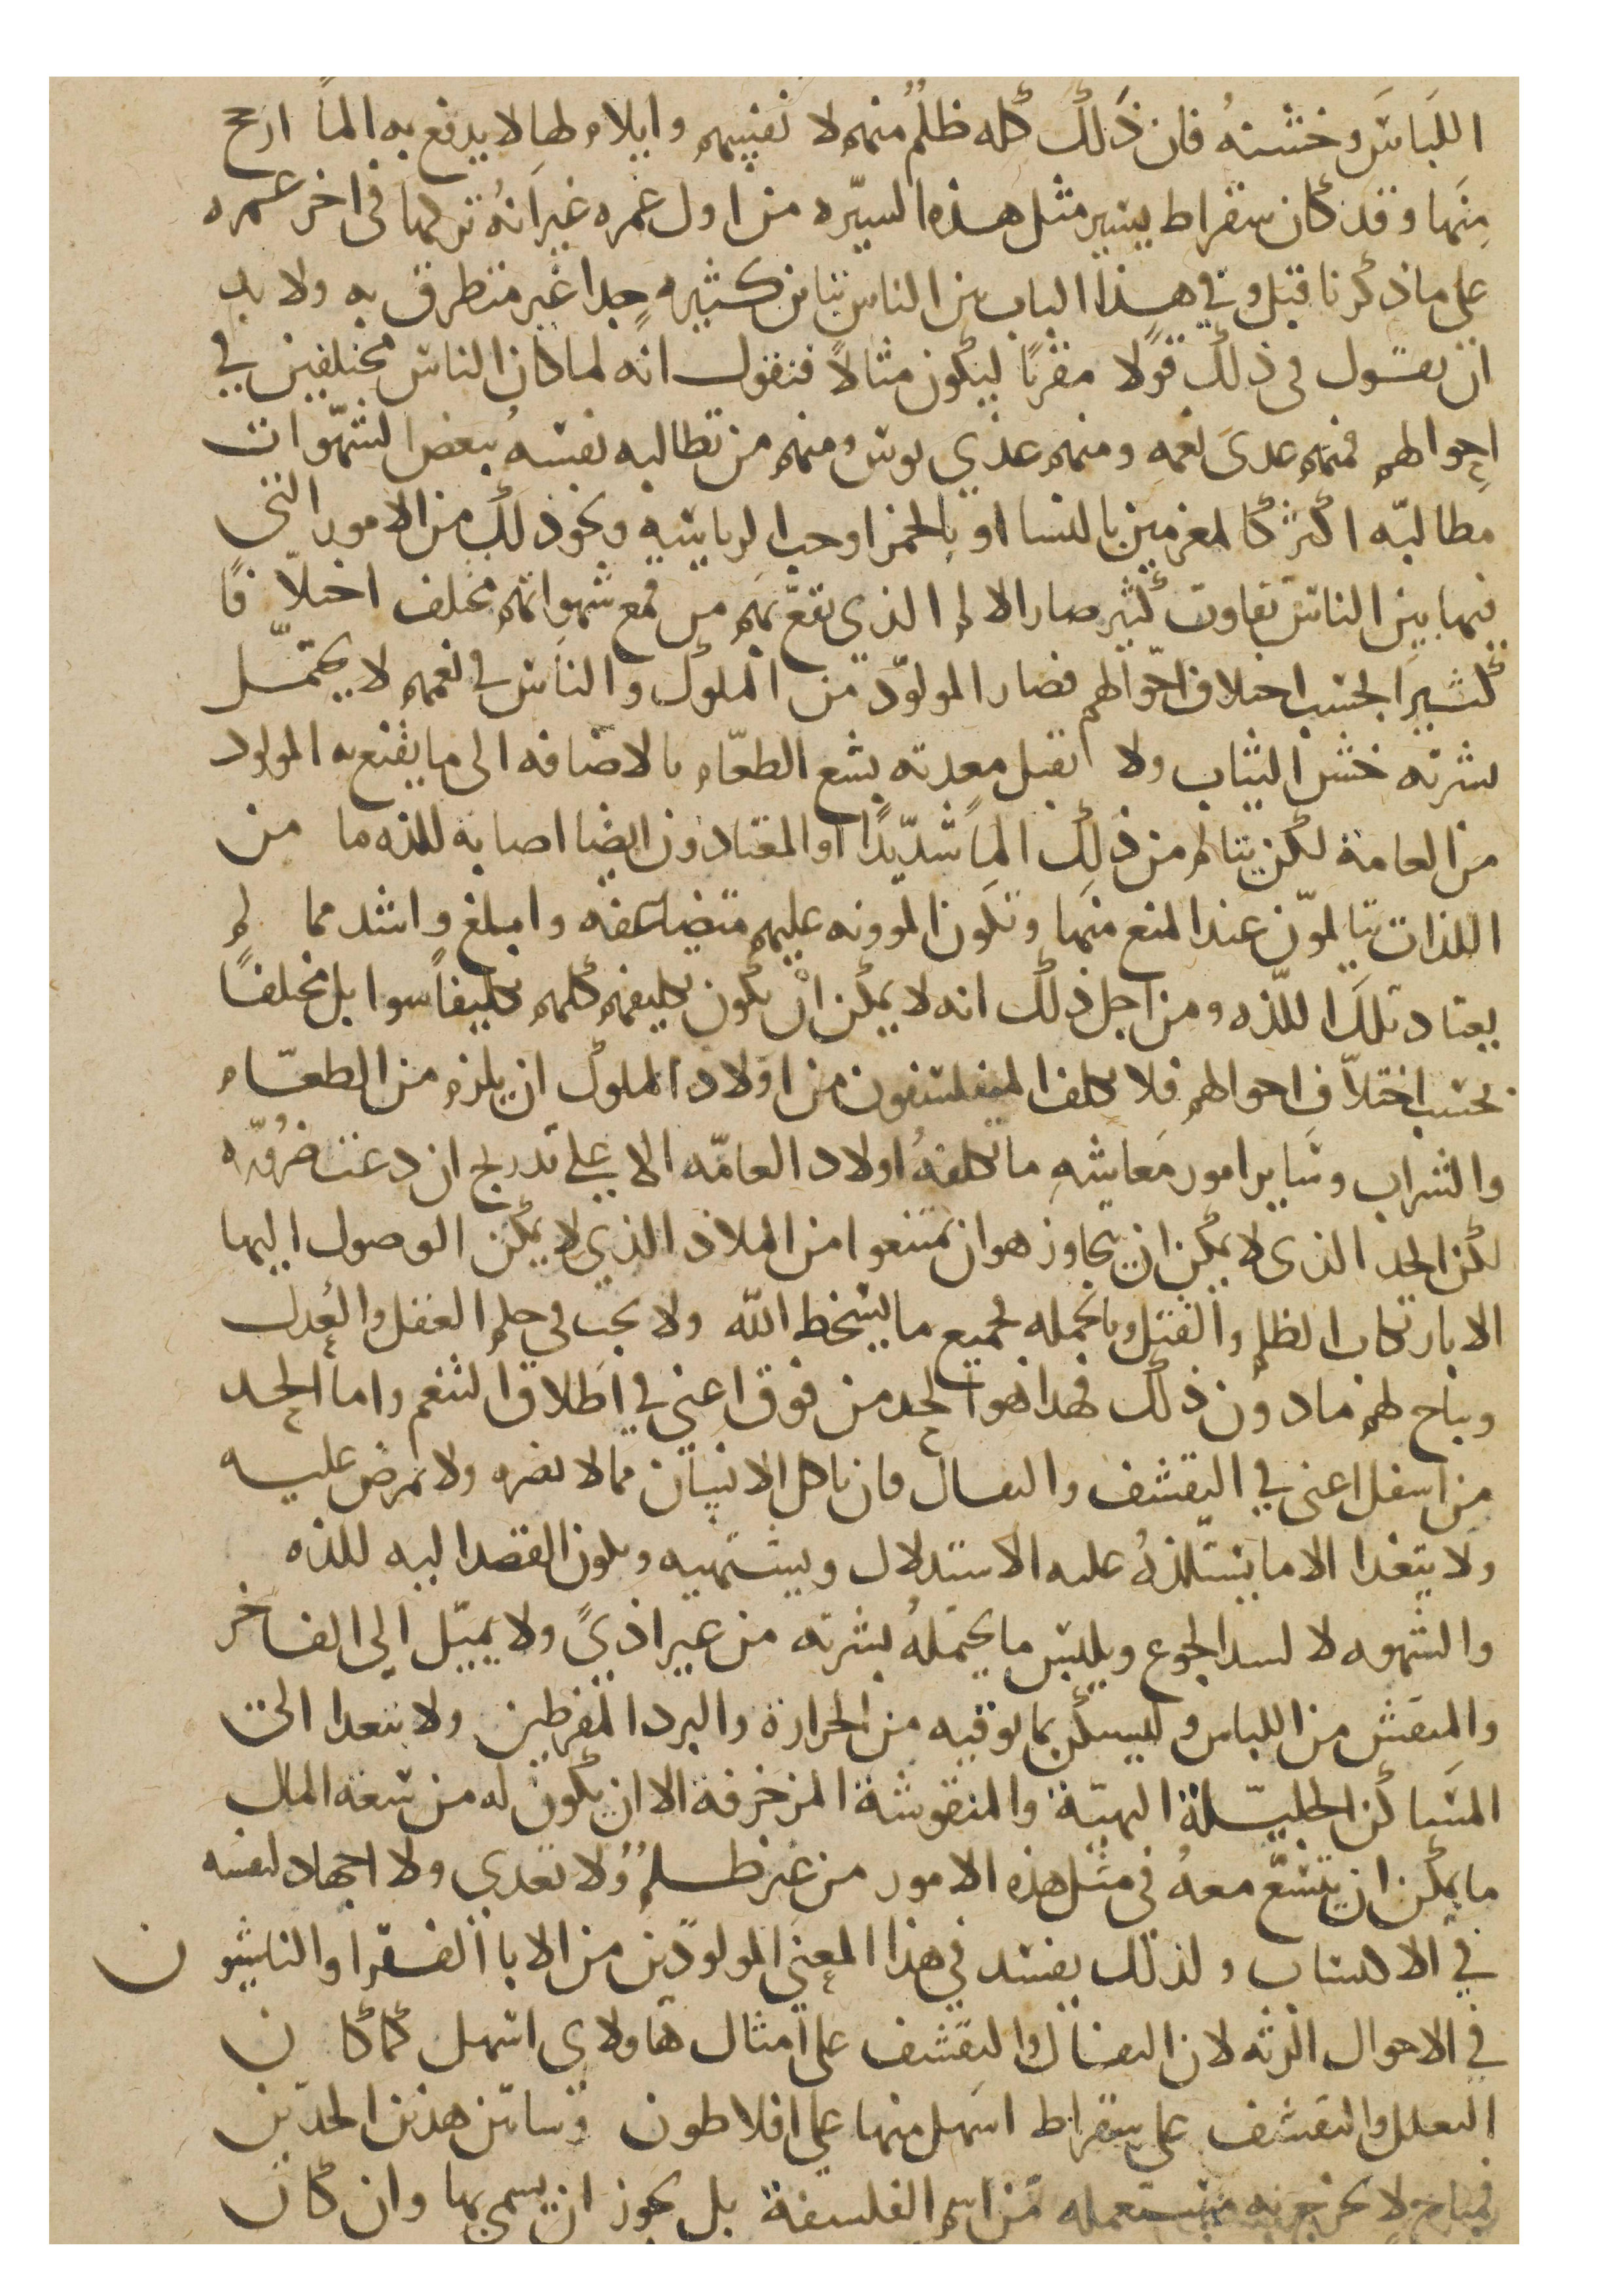 اللباس وخشنه فان ذلك كله ظلم منهم لا نفسهم وايلام لها لا يدفع به الما ارجح
منها وقد كان سقراط يسير مثل هذه السيره من اول عمره غير انه تركها في اخر عمره
على ما ذكرنا قبل وفي هذا الباب بين الناس تباين كثير جدا غير متطرق به ولا بد
ان نقول في ذلك قولا مقربا ليكون مثالا فنقول انه لما كان الناس مختلفين في
احوالهم فمنهم غذي نعمه ومنهم غذي بوس ومنهم من تطالبه نفسه ببعض الشهوات
مطالبه اكثر كالمغرمين بالنسا او بالخمر او حب الرياسه ونحو ذلك من الامور التي
فيها بين الناس تفاوت كثير صار الالم الذي يقع بهم من قمع شهواتهم مختلف اختلافا
كثيرا بحسب اختلاف احوالهم فصار المولود من الملوك والناس في نعمهم لا يحتمل
بشرته خشن الثياب ولا تقبل معدته بشع الطعام بالاضافه الى ما يقنع به المولود
من العامة لكن يتالم من ذلك الما شديدا او المعتادون ايضا اصابه للذه ما من
اللذات يتالمون عند المنع منها وتكون المووونه عليهم متضاعفه وابلغ واشد مما لم
يعتاد تلك اللذه ومن اجل ذلك انه لا يمكن ان يكون تكليفهم كلهم تكليفا سوا بل مختلفا
بحسب اختلاف احوالهم فلا يكلف المتفلسفون من اولاد الملوك ان يلزم من الطعام
والشراب وساير امور معايشه ما تكلفه اولاد العامه الا على تدريج ان دعت ضروره
لكن الحد الذي لا يمكن ان يتجاوز هو ان يمتنعوا من الملاذ الذي لا يمكن الوصول اليها
الا بارتكاب الظلم والقتل وبالجمله لجميع ما يسخط الله ولا يجب في حلم العقل والعدل
ويباح لهم ما دون ذلك فهذا هو الحد من فوق اعني في اطلاق التنعم واما الحد
من اسفل اعني في التقشف والتقال فان ياكل الانسان مما لا يضره ولا يمرض عليه
ولا يتعدا الا ما يستلذه عليه الاستدلال ويشتهيه ويكون القصد اليه للذه
والشهوه لا لسد الجوع ويلبس ما يحتمله بشرته من غير اذي ولا يميل الى الفاخر
والمنقش من اللباس وليسكن بما يوقيه من الحرارة والبرد المفرطين ولا يتعدا الى
المساكن الجليلة البهية والمنقوشة المزخرفة الا ان يكون له من سعه المال
ما يمكن ان يتسع معه في مثل هذه الامور من غير ظلم ولا تعدي ولا اجهاد لنفسه
في الاكتساب ولذلك يفسد في هذا المعنى المولودين من الابا الفقرا والناشيون
في الاحوال الرثه لان التقال والتقشف على امثال هاولاي اسهل كما كان
التعلل والتقشف على سقراط اسهل منها على افلاطون وساتن هذين الحدين
فمباح لا يخرج به مستعمله من اسم الفلسفة بل يجوز ان يسمى بها وان كان